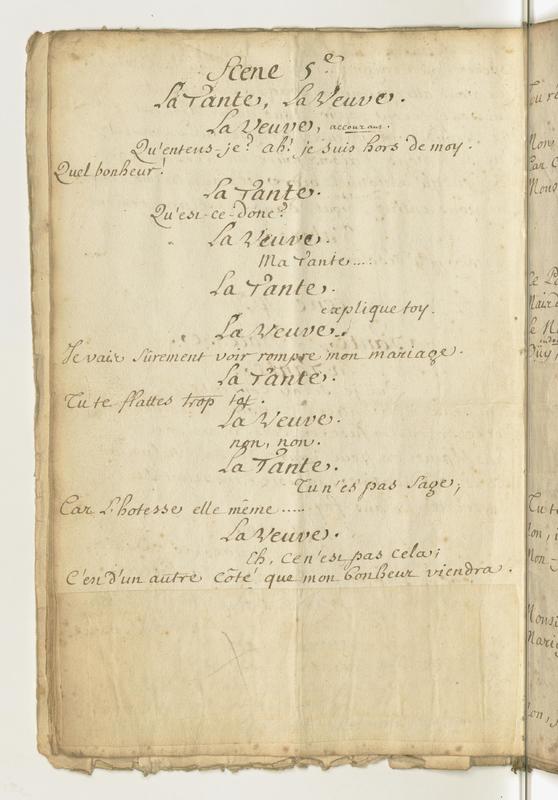 Scene 5e.
La Tante, La Veuve.
La Veuve, accourant.
Qu'entens-je? ah! je suis hors de moy.
Quel bonheur!
La Tante.
Qu'est-ce-donc?
La Veuve.
Ma Tante....
La Tante.
explique toy.
La Veuve.
Je vais sûrement voir rompre mon mariage.
La Tante.
Tu te flattes trop tôt.
La Veuve.
non, non.
La Tante.
Tu n'es pas sage;
Car L'hotesse elle même .....
La Veuve.
Eh, ce n'est pas cela;
C'est d'un autre côté que mon bonheur viendra.